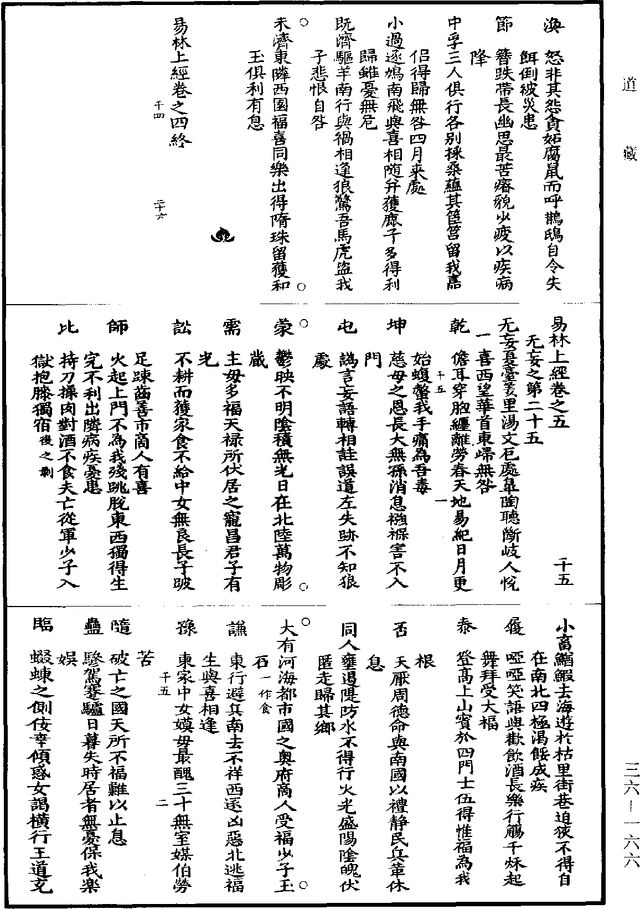 道藏
渙　怒非其怨貪妬腐鼠而呼鵲鴟自令失
餌倒被災患
節　簪跌帶長幽思最苦瘠貌少疲以疾病
降
中孚三人俱行各別採桑蘊其筐筥留我嘉
侶得歸無咎四月來處
小過逐鳩南飛與喜相隨并獲鹿子多得利
歸雖憂無危
既濟驅羊南行與禍相逢狼驚吾馬虎盜我
子悲恨自咎
未濟東隣西國福喜同樂出得隋珠留獲和
玉俱利有息
易林上經卷之四終
千四
二十六
易林上經卷之五
千五
无妄之第二十五
无妄憂臺羑里湯文厄處皐陶聽斷岐人悅
喜西望華首東歸無咎
乾　儋耳穿胸纏離勞春天地易紀日月更
始蝮螫我手痛為吾毒
千五
一
坤　慈母之恩長大無孫消息襁褓害不入
門
屯　譌言妄語轉相註誤道左失跡不知狼
處
蒙　鬱映不明陰積無光日在北陸萬物彫
蔵
需　主母多福天禄所伏居之寵昌君子有
光
訟　不耕而獲家食不給中女無良長子跛
足踈齒善市商人有喜
師　火起上門不為我殘跳脫東西獨得生
完不利出隣病疾憂患
比　持刀操肉對酒不食夫亡從軍少子入
獄抱膝獨宿後之剝
小畜鰌鰕去海遊於枯里街巷迫狹不得自
在南北四極渴餒成疾
履　啞啞笑語與歡飲酒長樂行觴千秋起
舞拜受大福
泰　登高上山賓於四門士伍得懽福為我
根
否　天厭周德命與南國以禮靜民兵革休
息
同人壅遏隄防水不得行火光盛陽陰魄伏
匿走歸其鄉
大有河海都市國之奧府商人受福少子玉
石一作食
謙　東行避兵南去不祥西逐凶惡北逃福
生與喜相逢
豫　東家中女嫫母最醜三十無室媒伯勞
苦
千五
二
隨　破亡之國天所不福難以止息
蠱　驂駕蹇驢日暮失時居者無憂保我樂
娛
臨　蝃蝀之側佞幸傾惑女謁橫行王道充
三六—一六六